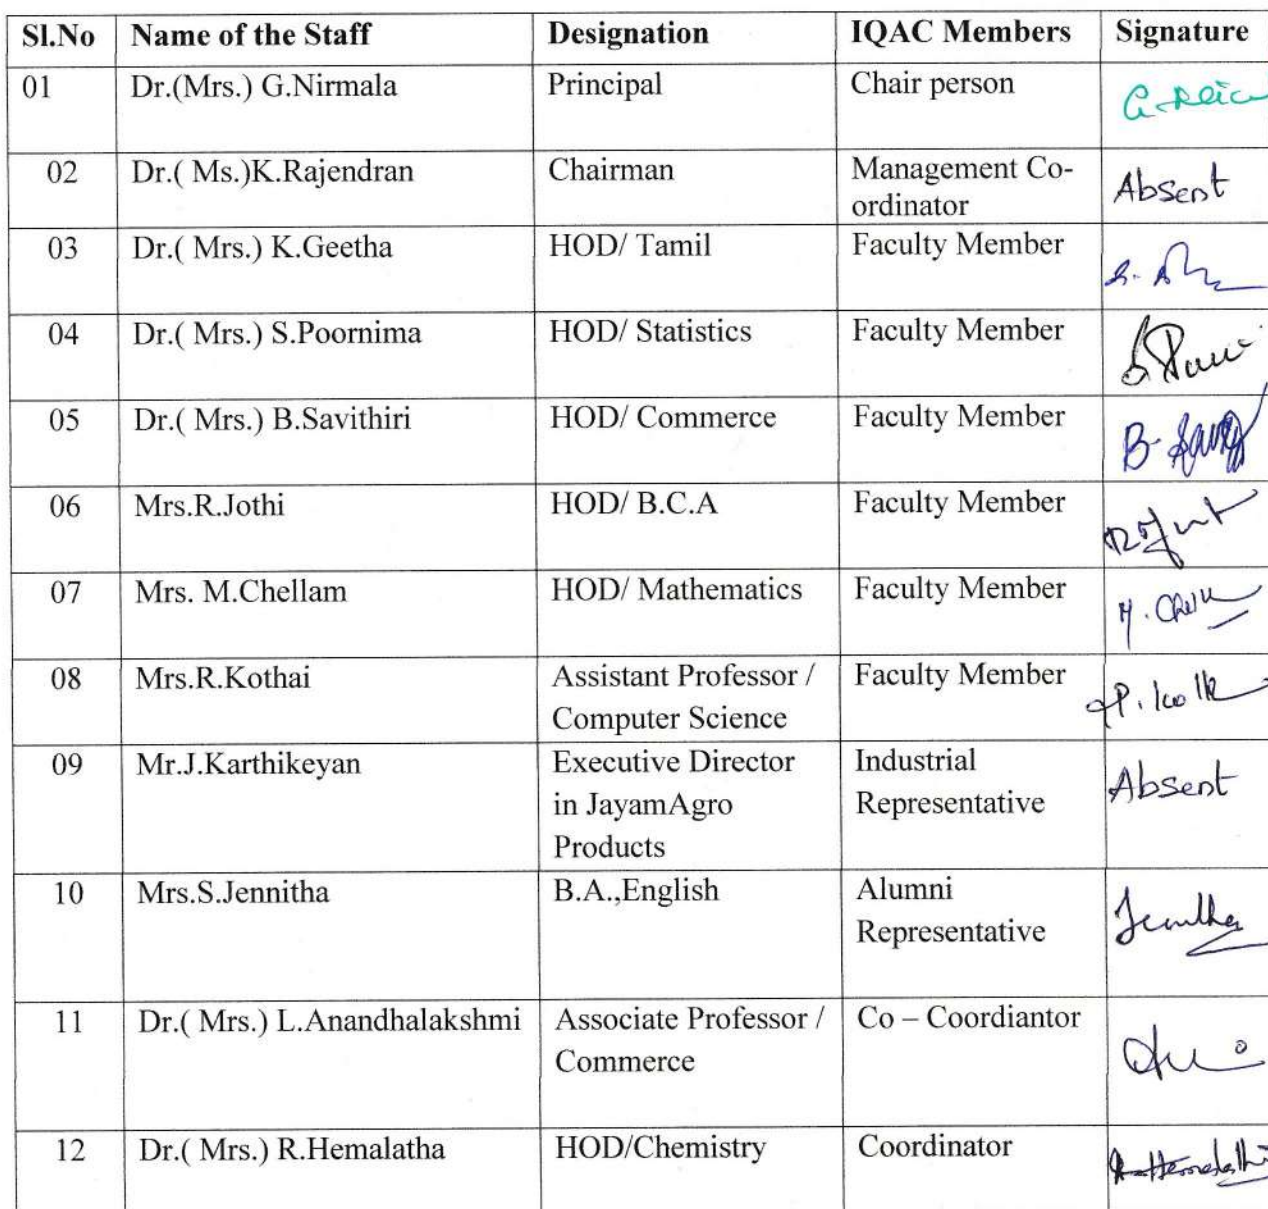 Sl.No Name of the Staff Designation IQAC Members Signature
01 Dr.(Mrs.) G.Nirmala Principal Chair person
02 Dr.( Ms.)K.Rajendran Chairman Management Co-
ordinator Absent
03 Dr.( Mrs.) K.Geetha HOD/ Tamil Faculty Member
04 Dr.( Mrs.) S.Poornima HOD/ Statistics Faculty Member
05 Dr.( Mrs.) B.Savithiri HOD/ Commerce Faculty Member
06 Mrs.R.Jothi HOD/ B.C.A Faculty Member
07 Mrs. M.Chellam HOD/ Mathematics Faculty Member
08 Mrs.R.Kothai Assistant Professor / Faculty Member
Computer Science
09 Mr.J.Karthikeyan Executive Director Industrial Absent
in JayamAgro Representative
Products
10 Mrs.S.Jennitha B.A.,English Alumni
Representative
11 Dr.( Mrs.) L.Anandhalakshmi Associate Professor / Co – Coordiantor
Commerce
12 Dr.( Mrs.) R.Hemalatha HOD/Chemistry Coordinator